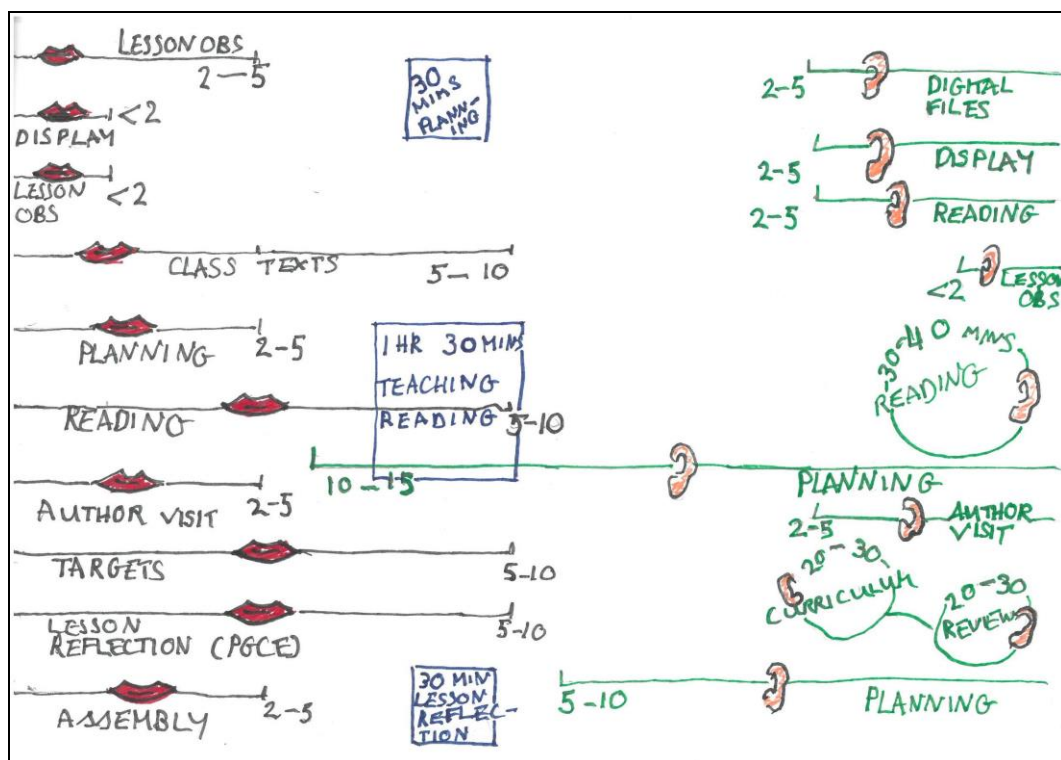 LESSON OBS
2-5
<2
DISPLAY
<2
LESSON
OBS
CLASS TEXTS
5-10
PLANNING
2-5
READING
5-10
AUTHOR VISIT
2-5
TARGETS
5-10
LESSON
REFLECTION (PGCE)
5-10
ASSEMBLY
2-5
30
MINS
PLANN-
ING
1 HR 30 MINS
TEACHING
READING
10-15
30 MIN
LESSON
REFLEC-
TION
2-5
DIGITAL
FILES
2-5
DISPLAY
2-5
READING
<2
LESSON
OBS
30-40 MINS
READING
PLANNING
2-5
AUTHOR
VISIT
20-30
CURRICULUM
20-30
REVIEW
5-10
PLANNING